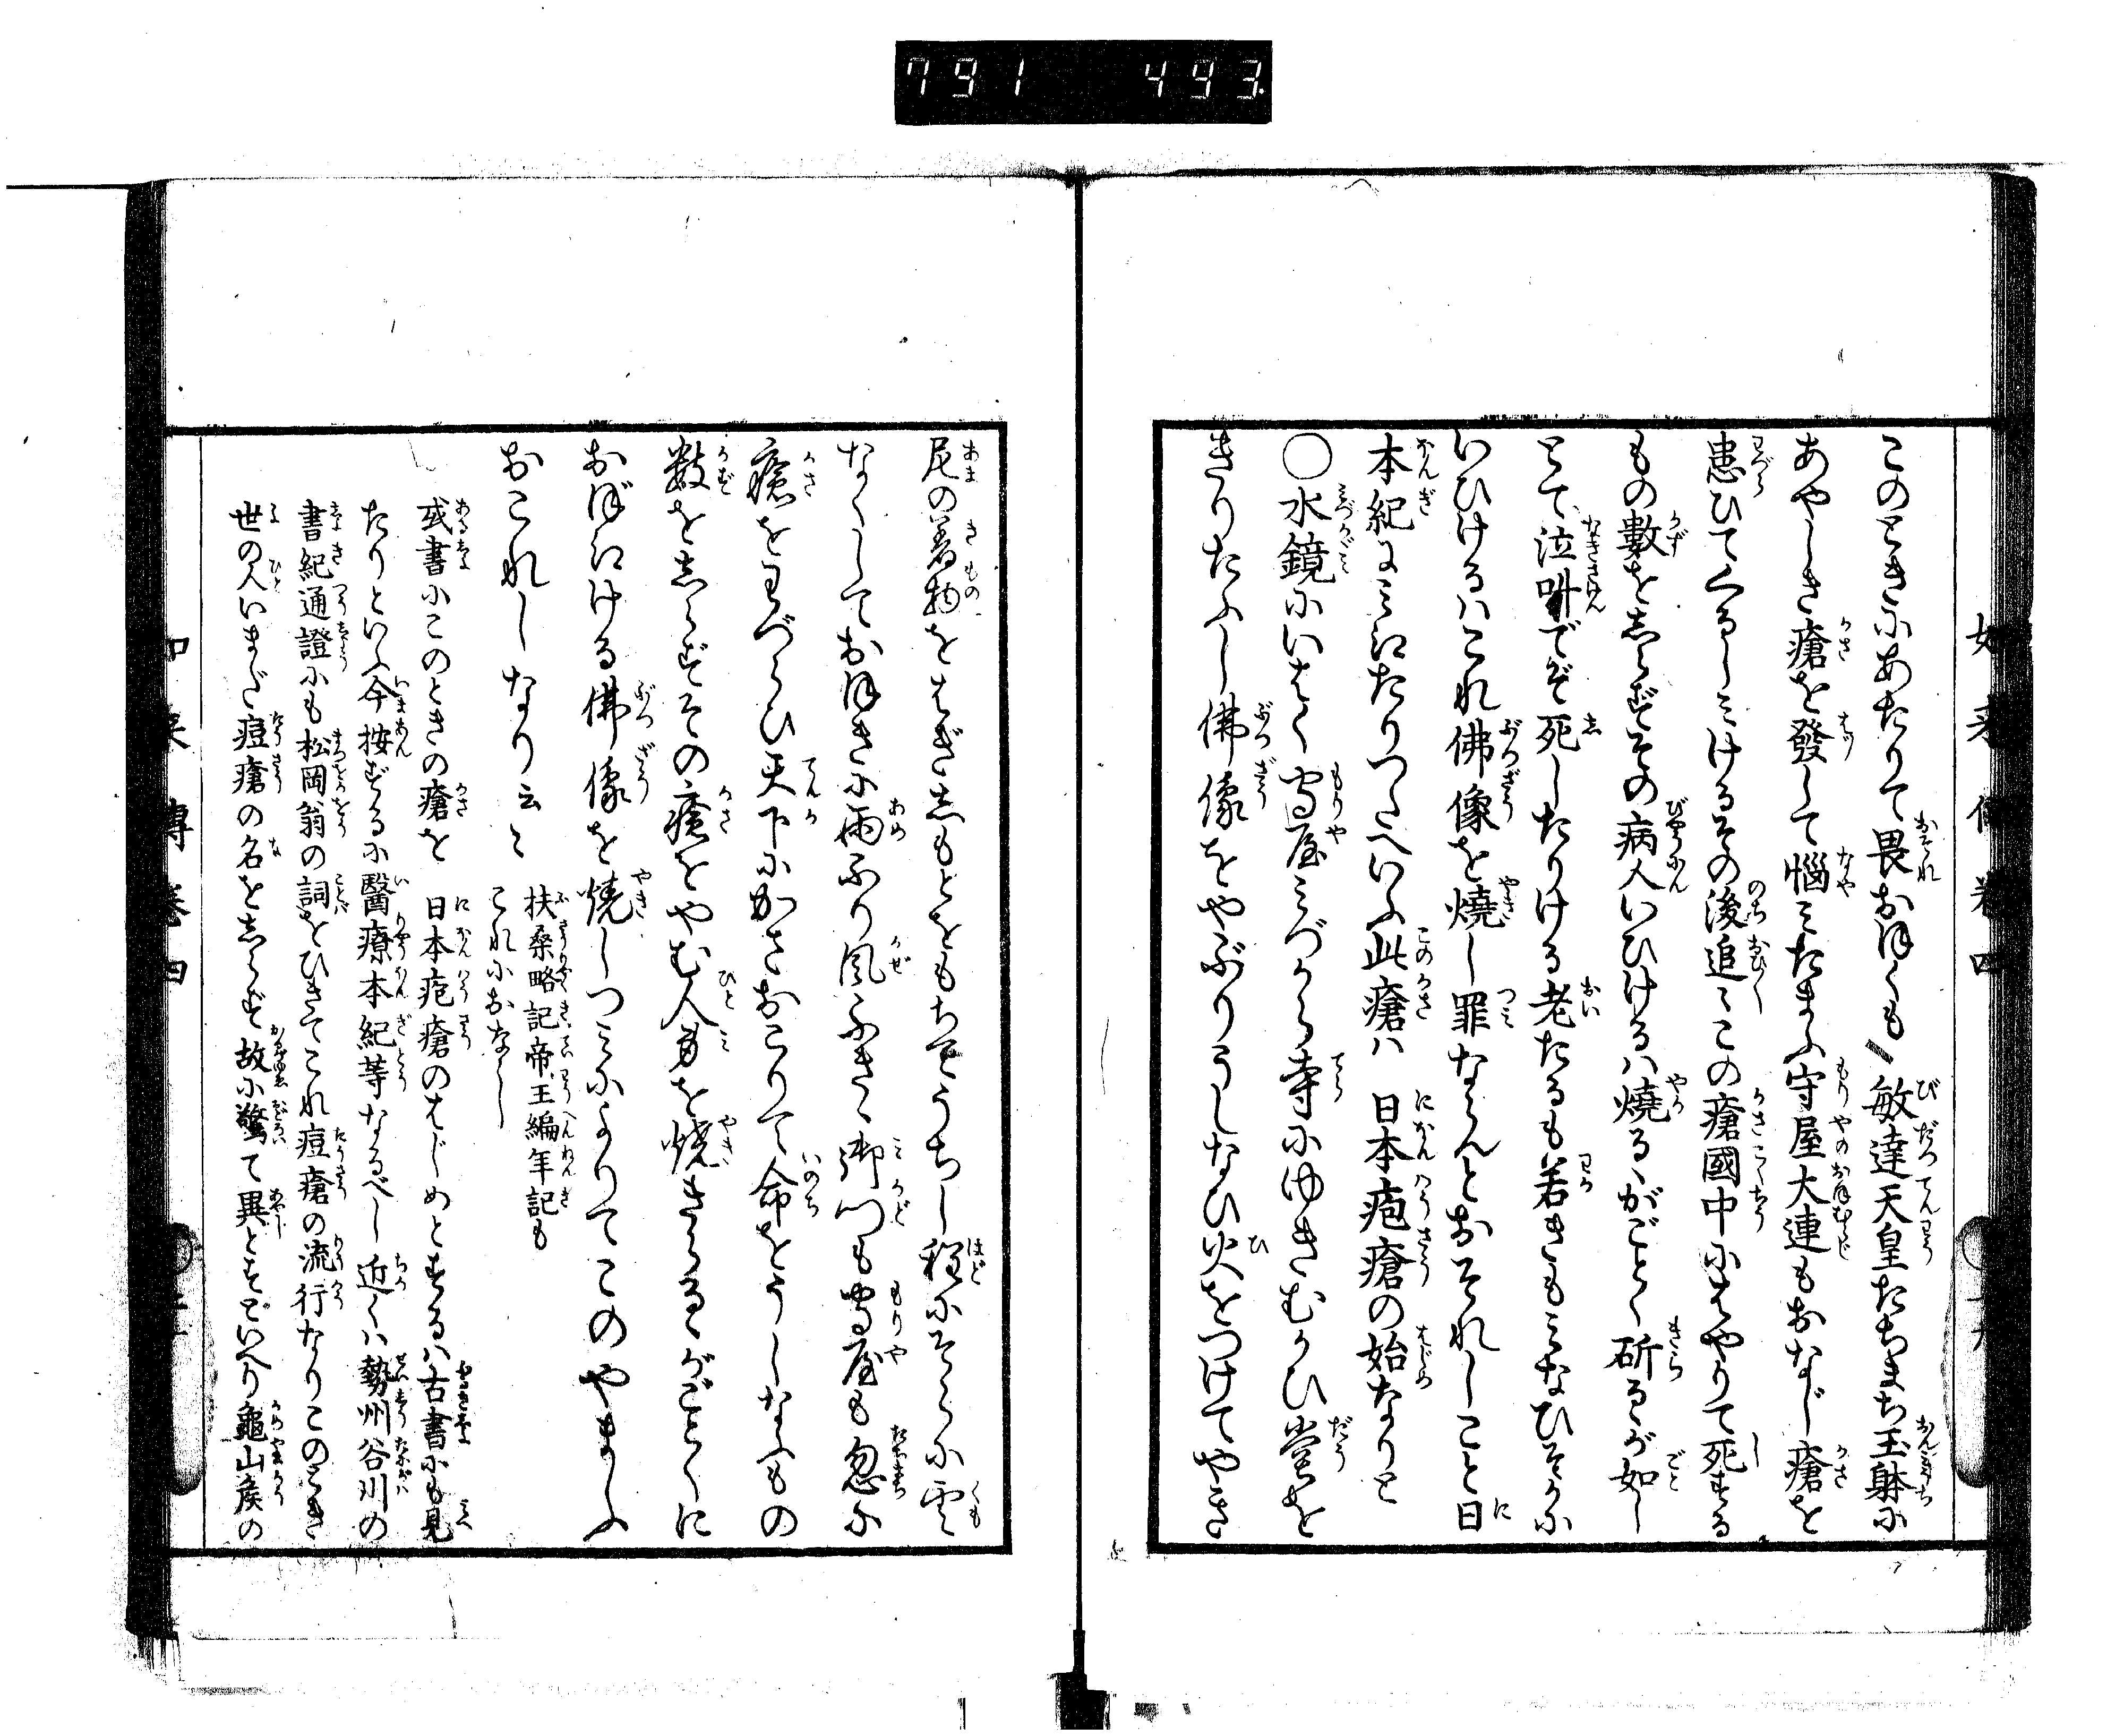 791 493
このときにあたりて畏おほくも敏達天皇たちまち玉躰に
あやしき瘡を發して惱みたまふ守屋大連もおなじ瘡を
患ひてくるしみけるその後追〻この瘡國中にはやりて死する
もの數をしらずその病人いひけるハ燒るゝがごとく斫るゝが如し
とて泣叫でぞ死したりける老たるも若きもみなひそかに
いひけるハこれ佛像を燒し罪ならんとおそれしこと日
本紀にみえたりつたへいふ此瘡ハ日本疱瘡の始なりと
〇水鏡にいはく守屋みづから寺にゆきむかひ堂を
きりたふし佛像をやぶりうしなひ火をつけてやき
尼の着物をはぎしもとをもちてうちし程にそらに雲
なくしておほきに雨ふり風ふきゝ御門も守屋も忽に
瘡をわづらひ天下にかさおこりて命をうしなふもの
數をしらずその瘡をやむ人身を燒きらるゝがごとくに
おぼえける佛像を燒しつみによりてこのやまふ
おこれしなり云〻
扶桑略記帝王編年記も
これにおなし
或書にこのときの瘡を日本疱瘡のはじめとするハ古書にも見
たりといふ今按ずるに醫療本紀等なるべし近くハ勢州谷川の
書紀通證にも松岡翁の詞をひきてこれ痘瘡の流行なりこのとき
世の人いまだ痘瘡の名をしらず故に驚て異とすといへり龜山侯の
如来傳卷四